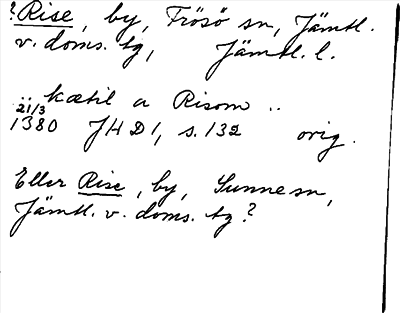 ? Rise, by, Frösö sn, Jämtl.
v. doms. tg, Jämtl. l.
.. kætil a Risom ..
21/3
1380 JHD 1, s. 132 orig.
Eller Rise, by, Sunne sn,
Jämtl. v. doms. tg?